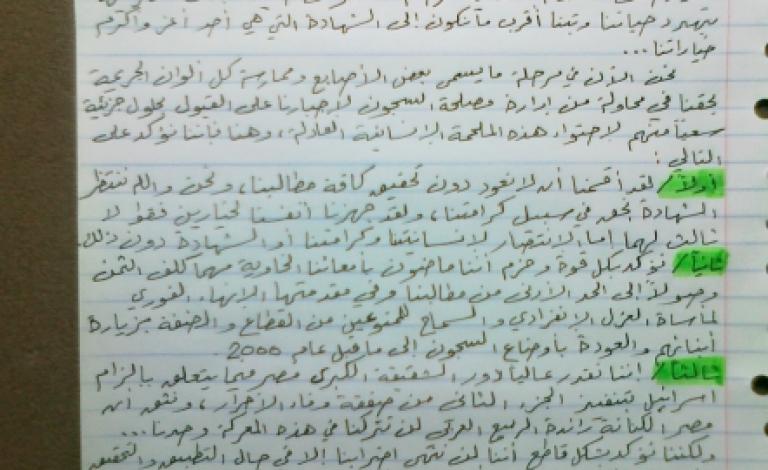 يتهدد حياتنا وبتنا أقرب ما نكون إلى الشهادة التي هي أحد أعز وأكرم
خياراتنا...
نحن الآن في مرحلة ما يسمى بعض الأصابع وممارسة كل ألوان الجريمة
بحقنا في محاولة من إدارة مصلحة السجون لإجبارنا على القبول بحلول جزئية
سعياً منهم لاحتواء هذه الملحمة الإنسانية العادلة، وهنا فإننا نؤكد على
التالي:
أولاً/ لقد أقسمنا أن لا نعود دون تحقيق كافة مطالبنا، ونحن والله ننتظر
الشهادة بحق في سبيل كرامتنا، ولقد جهزنا أنفسنا لخيارين فقط لا
ثالث لهما إما الانتصار لإنسانيتنا وكرامتنا أو الشهادة دون ذلك.
ثانياً/ نؤكد بكل قوة وحزم أننا ماضون بأمعائنا الخاوية مهما كلف الثمن
وصولاً إلى الحد الأدنى من مطالبنا وفي مقدمتها الإنهاء الفوري
لمأساة العزل الانفرادي والسماح للممنوعين من القطاع والضفة بزيارة
أبنائهم والعودة بأوضاع السجون إلى ما قبل عام 2000.
ثالثاً/ إننا نقدر عالياً دور الشقيقة الكبرى مصر فيما يتعلق بإلزام
اسرائيل بتنفيذ الجزء الثاني من صفقة وفاء الأحرار، ونثق أن
مصر الكنانة رائدة الربيع العربي لن تتركنا في هذه المعركة وحدنا...
ولكننا نؤكد بشكل قاطع أننا لن ننهي اضرابنا إلا في حال التطبيق والتحقيق